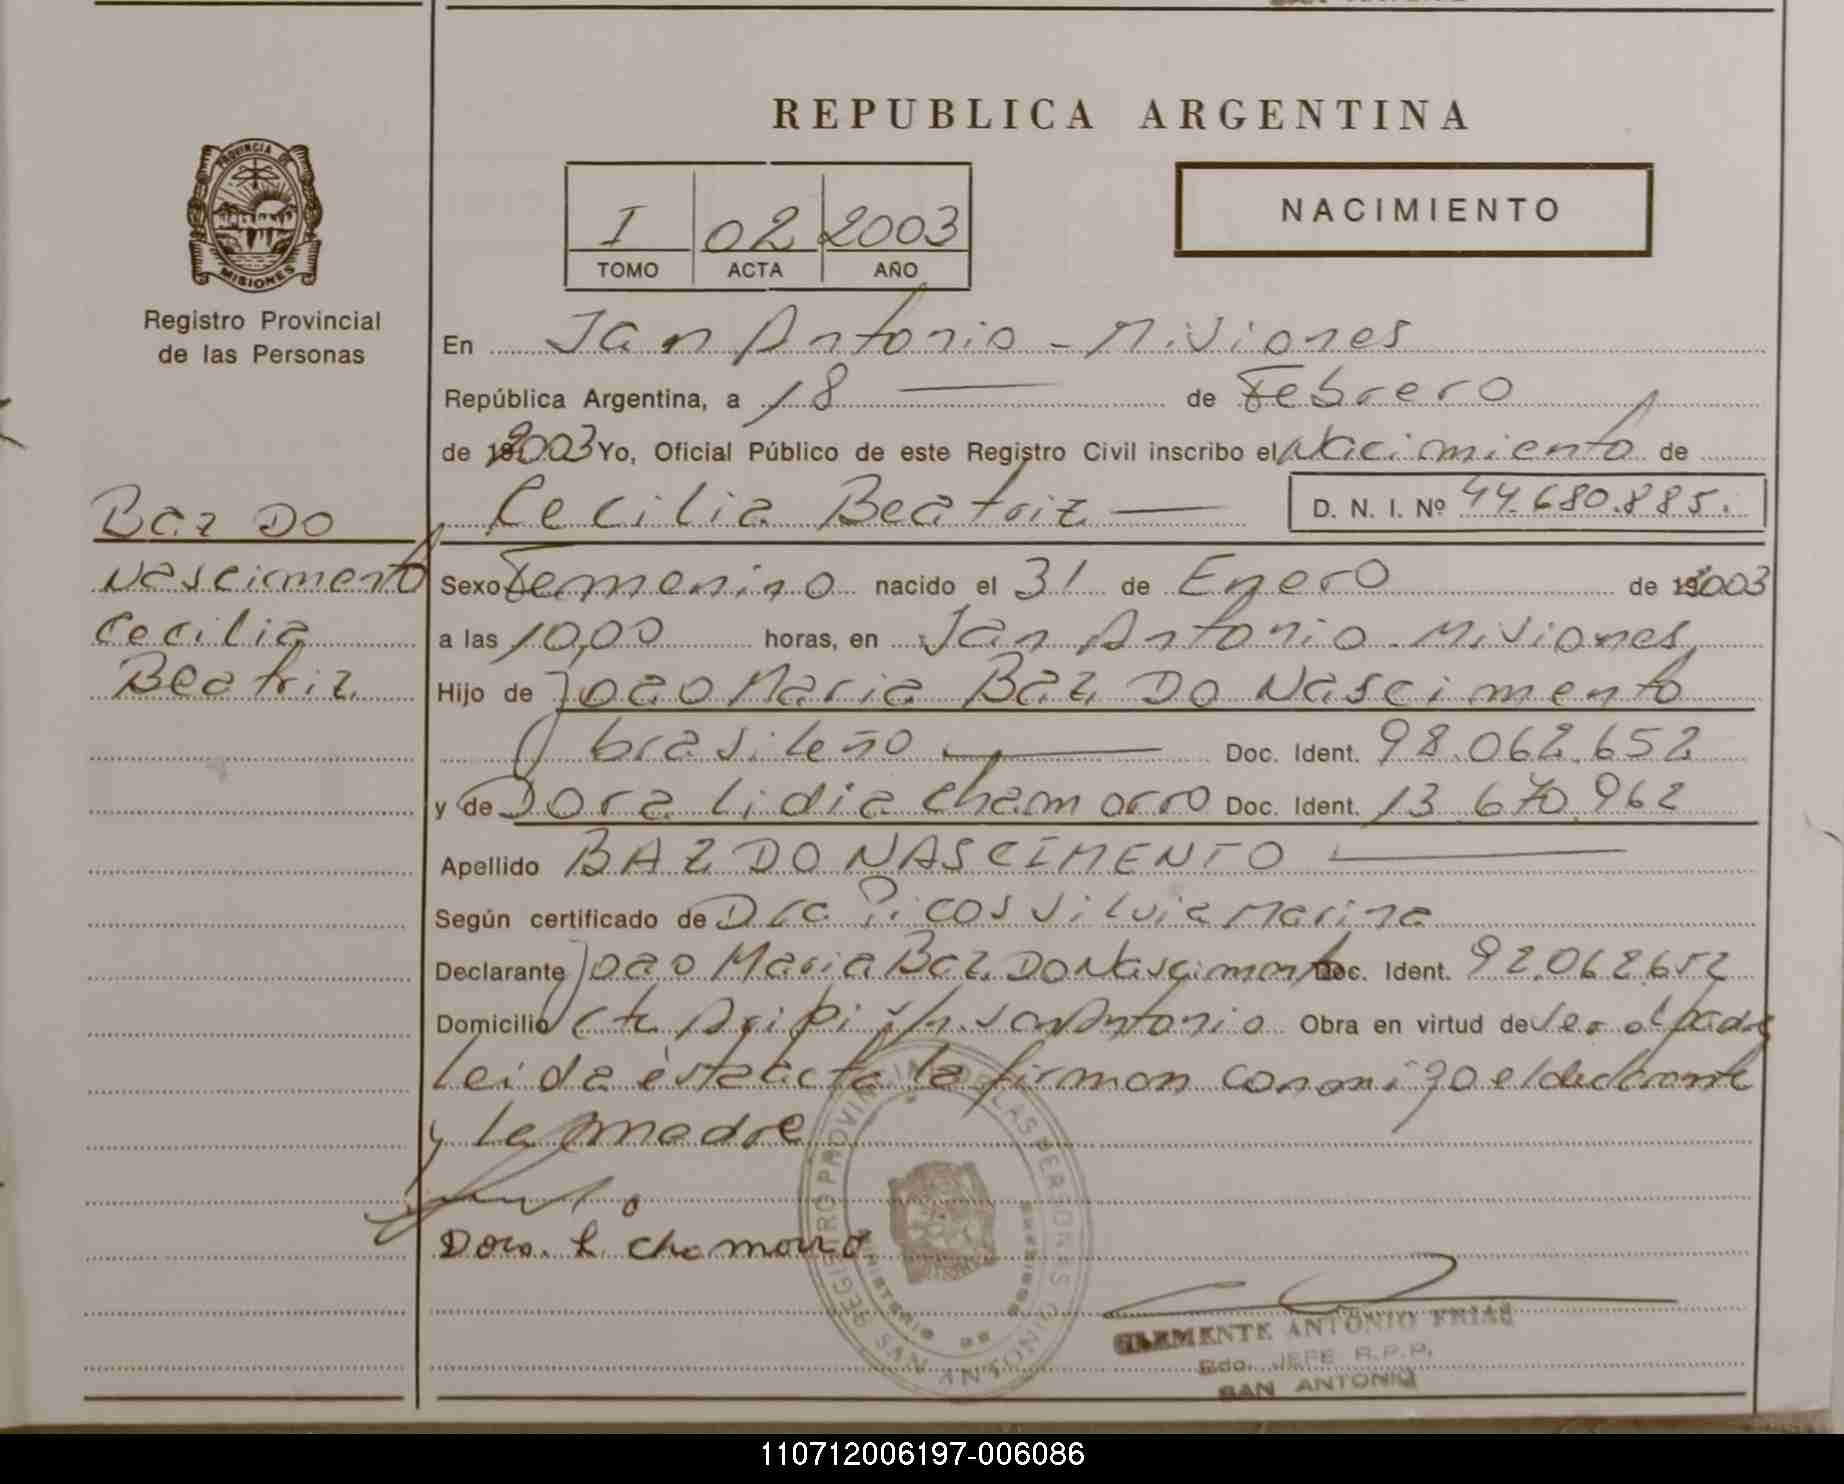 REPUBLICA ARGENTINA
PROVINCIA DE
MISIONES
Registro Provincial
de las Personas
I 02 2003
TOMO ACTA AÑO
NACIMIENTO
En San Antonio - Misiones
República Argentina, a 18 de Febrero
de 2003 Yo, Oficial Público de este Registro Civil inscribo el Nacimiento de
Cecilia Beatriz D. N. I. Nº 44.680.885.
Baz Do
Nascimento
Cecilia
Beatriz
Sexo Femenino nacido el 31 de Enero de 2003
a las 10,00 horas, en San Antonio - Misiones
Hijo de Joao Maria Baz Do Nascimento
brasileño Doc. Ident. 98.062.652
y de Dora Lidia Chamorro Doc. Ident. 13.670.962
Apellido BAZ DO NASCIMENTO
Según certificado de Dra Picos Silvia Marina
Declarante Joao Maria Baz Do Nascimento Doc. Ident. 92.062.652
Domicilio s/n. San Antonio Obra en virtud de ser el padre
leida esta acta la firman conmigo el declarante
y la madre
Dora L Chamorro
REGISTRO PROVINCIAL DE LAS PERSONAS
SAN ANTONIO
CLEMENTE ANTONIO FRIAS
JEFE R.P.P.
SAN ANTONIO
110712006197-006086